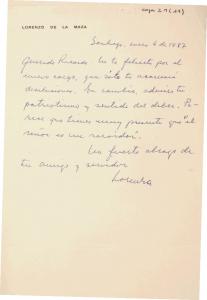 caja 21 (11)
LORENZO DE LA MAZA
Santiago, enero 6 de 1987
Querido Ricardo: No te felicito por el
nuevo cargo, que sólo te acarreará
desilusiones. En cambio, admiro tu
patriotismo y sentido del deber. Pa-
rece que tienes muy presente que "el
señor es mi
Un fuerte abrazo de
tu amigo y servidor
Lorenzo